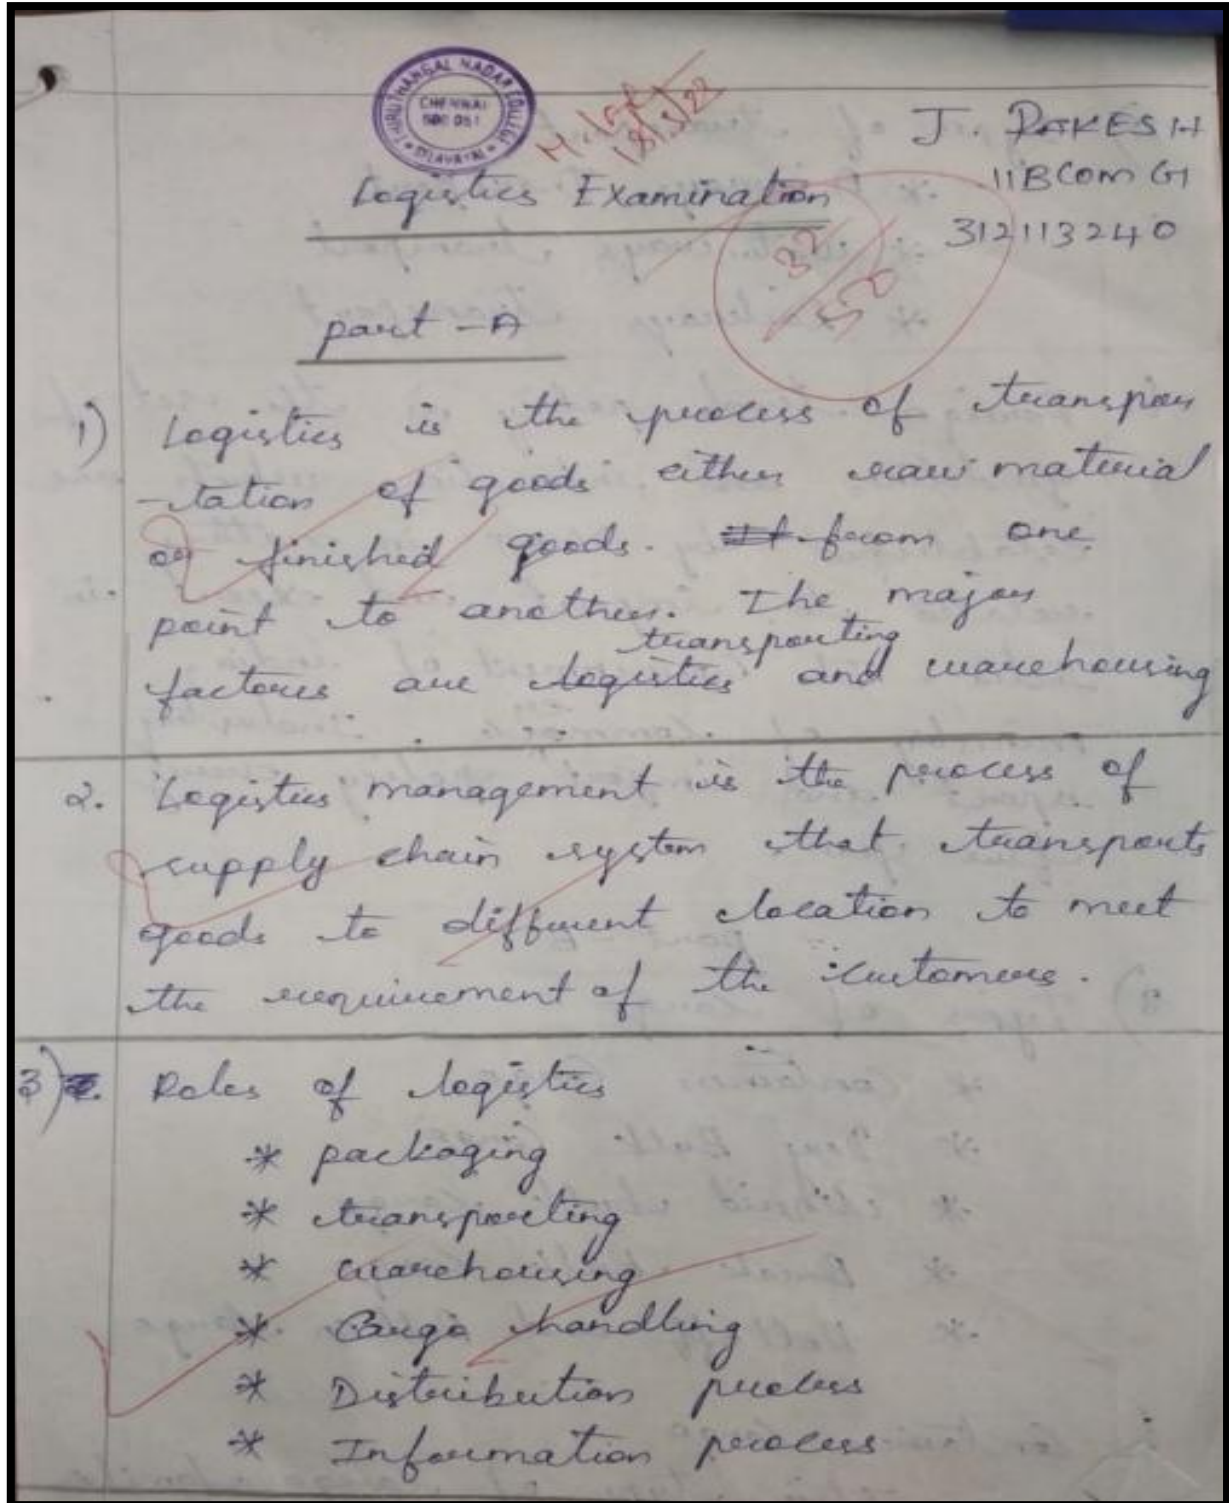 THIRUTHANGAL NADAR COLLEGE
CHENNAI
600 051
18/3/22
J. RAKESH
II BCom G1
312113240
Logistics Examination
32/50
part - A
1) Logistics is the process of transpor
-tation of goods either raw material
or finished goods. from one
point to another. The major
transporting
factores are logistics and warehousing
2. Logistics management is the process of
supply chain system that transports
goods to different location to meet
the requirement of the customers.
3) Roles of logistics
* packaging
* transporting
* warehousing
* Cargo handling
* Distribution process
* Information process